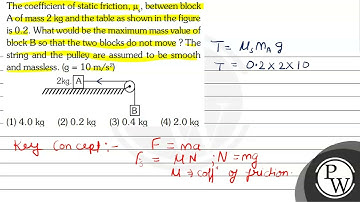 The coefficient of static friction, μₛ, between block
A of mass 2 kg and the table as shown in the figure
is 0.2. What would be the maximum mass value of
block B so that the two blocks do not move ? The
string and the pulley are assumed to be smooth
and massless. (g = 10 m/s²)
2kg A
B
(1) 4.0 kg (2) 0.2 kg (3) 0.4 kg (4) 2.0 kg
T = μₛ mA g
T = 0.2 × 2 × 10
Key Concept :- F = ma
Fₛ = μN ; N = mg
μ → coffⁿ of friction.
PW